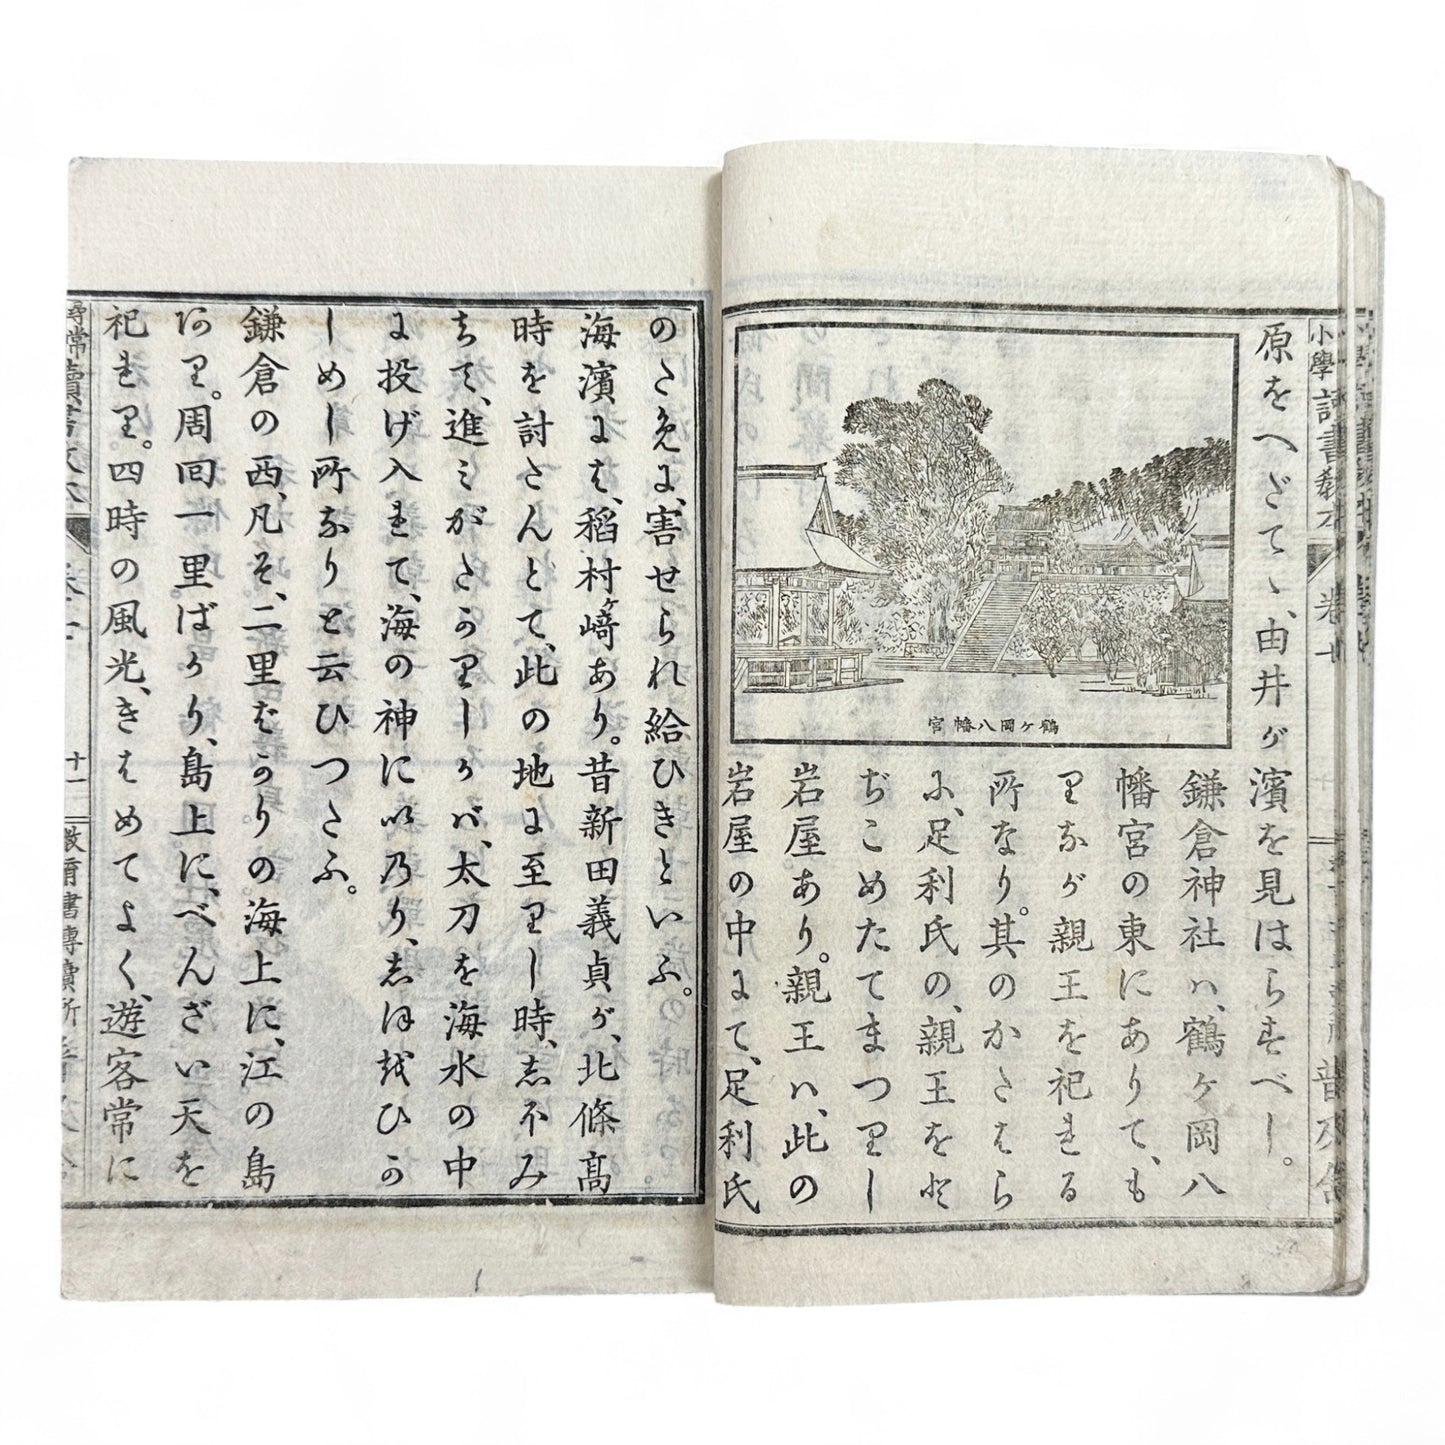 原をへだてゝ、由井が濱を見はらすべし。
鶴ケ岡八幡宮
鎌倉神社ハ、鶴ケ岡八
幡宮の東にありて、も
りなが親王を祀れる
所なり。其のかたはら
に、足利氏の、親王をと
ぢこめたてまつりし
岩屋あり。親王ハ、此の
岩屋の中にて、足利氏
のために、害せられ給ひきといふ。
海濱には、稻村ケ﨑あり。昔新田義貞が、北條髙
時を討たんとて、此の地に至りし時、志不み
ちて、進みがたかりしかバ、太刀を海水の中
に投げ入れて、海の神にいのり、志ほをひか
しめし所なりと云ひつたふ。
鎌倉の西、凡そ、二里ばかりの海上に、江の島
あり。周回一里ばかり、島上に、べんざい天を
祀れり。四時の風光、きはめてよく、遊客常に
小學讀書教本
卷七
普及舍
尋常讀書教本
十一